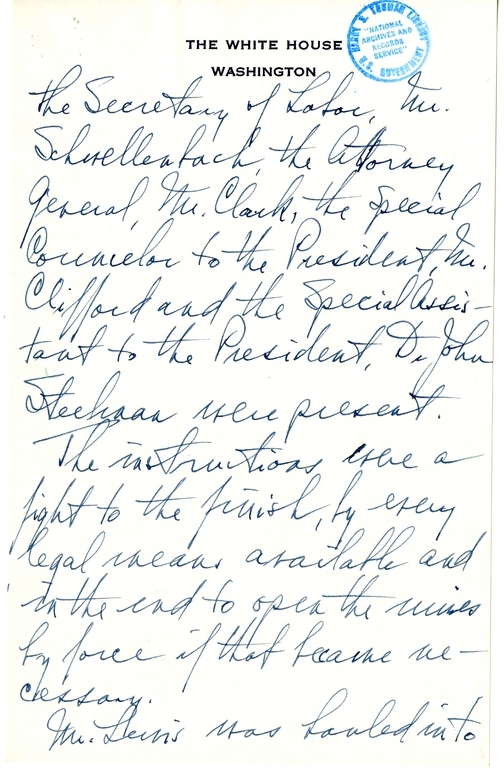 THE WHITE HOUSE
WASHINGTON
HARRY S. TRUMAN LIBRARY
"NATIONAL
ARCHIVES AND
RECORDS
SERVICE"
U.S. GOVERNMENT
the Secretary of Labor, Mr.
Schwellenbach, the Attorney
General, Mr. Clark, the Special
Councelor to the President, Mr.
Clifford and the Special Assis-
tant to the President, Dr John
Steelman were present.
The instructions were a
fight to the finish, by every
legal means available and
in the end to open the mines
by force if that became ne-
cessary.
Mr. Lewis was hauled into